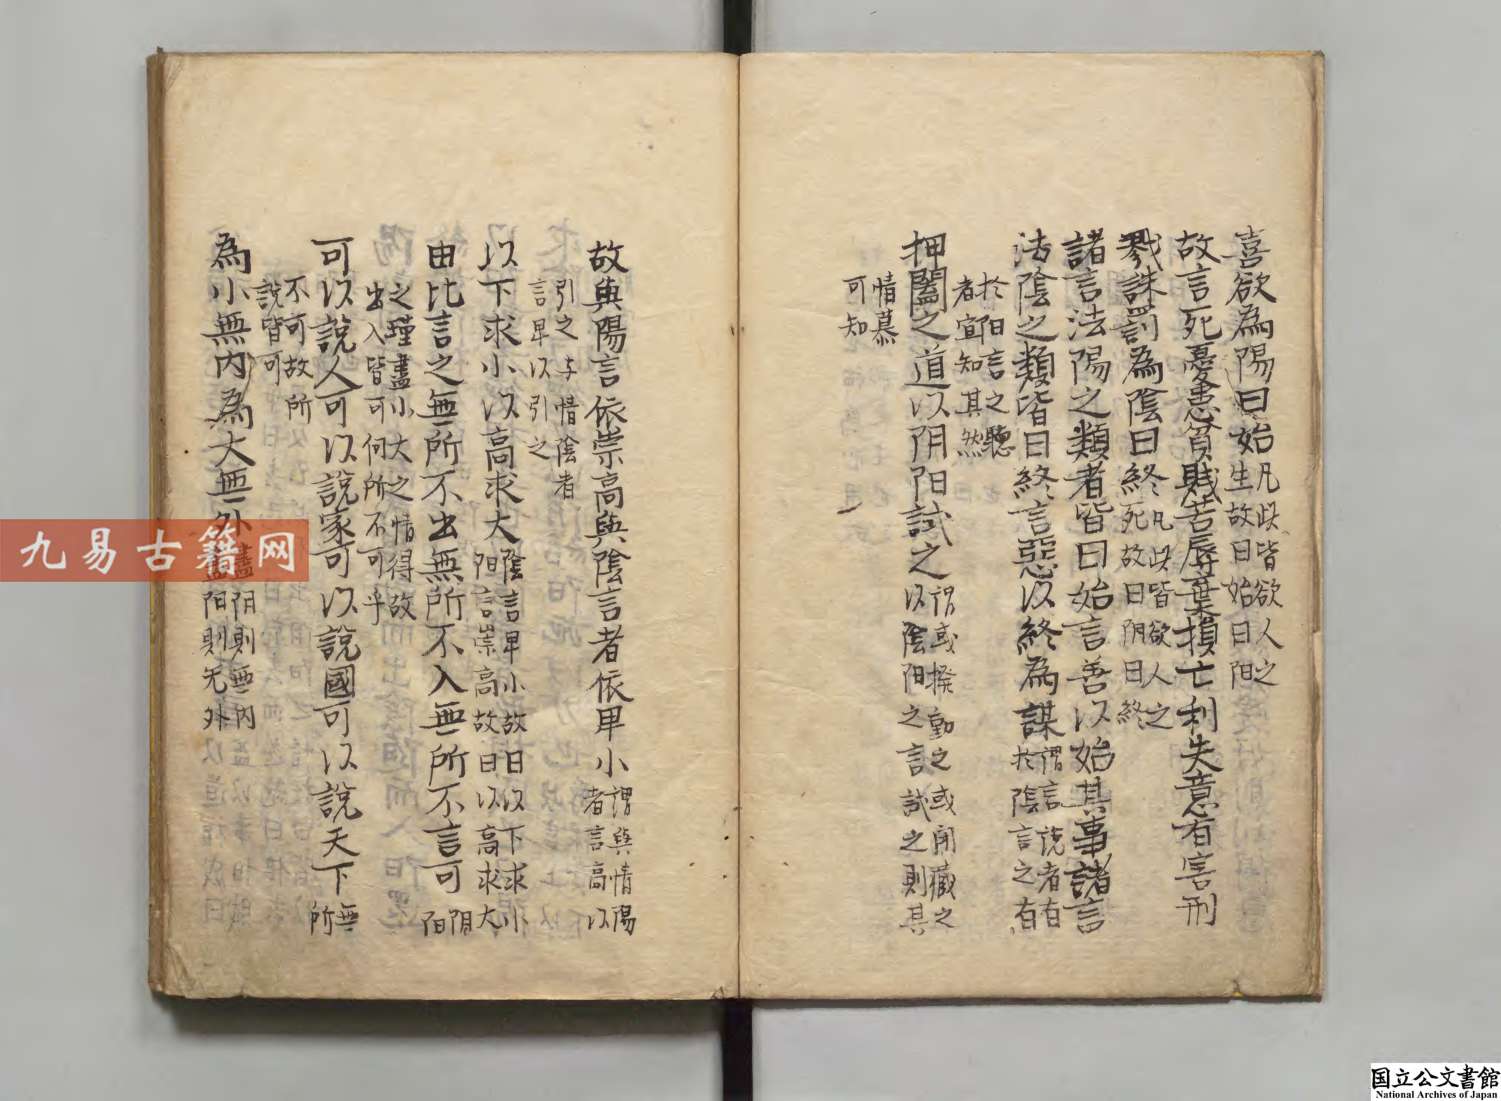 喜欲為陽曰始凡此皆欲人之
生故曰始曰阳
故言死憂患貧賤苦辱棄損亡利失意有害刑
戮誅罰為陰曰終凡此皆欲人之
死故曰阴曰終
諸言法陽之類者皆曰始言善以始其事諸言
法陰之類皆曰終言惡以終為謀謂言说者有
於陰言之有
於阳言之聽
者宜知其然
押闔之道以阴阳試之謂或揆動之或闭藏之
以陰阳之言試之則其
情慕
可知
故與陽言依崇高與陰言者依卑小謂與情陽
者言高以
引之与情陰者
言卑以引之
以下求小以高求大陰言卑小故曰以下求小
阳言崇高故曰以高求大
由比言之無所不出無所不入無所不言可阴
阳
之瑾盡小大之情得故
出入皆可何所不可乎
可以說人可以說家可以說國可以說天下無
所
不可故所
說皆可
為小無内為大無外盡阴則無内
盡阳則无外
九易古籍网
国立公文書館
National Archives of Japan